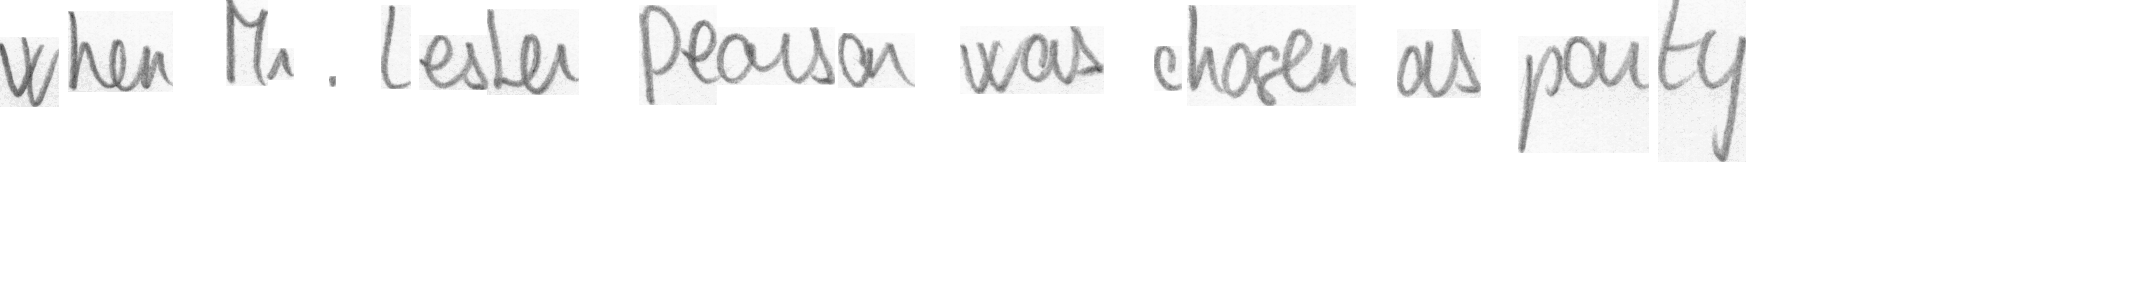 when Mr. Lester Pearson was chosen as party